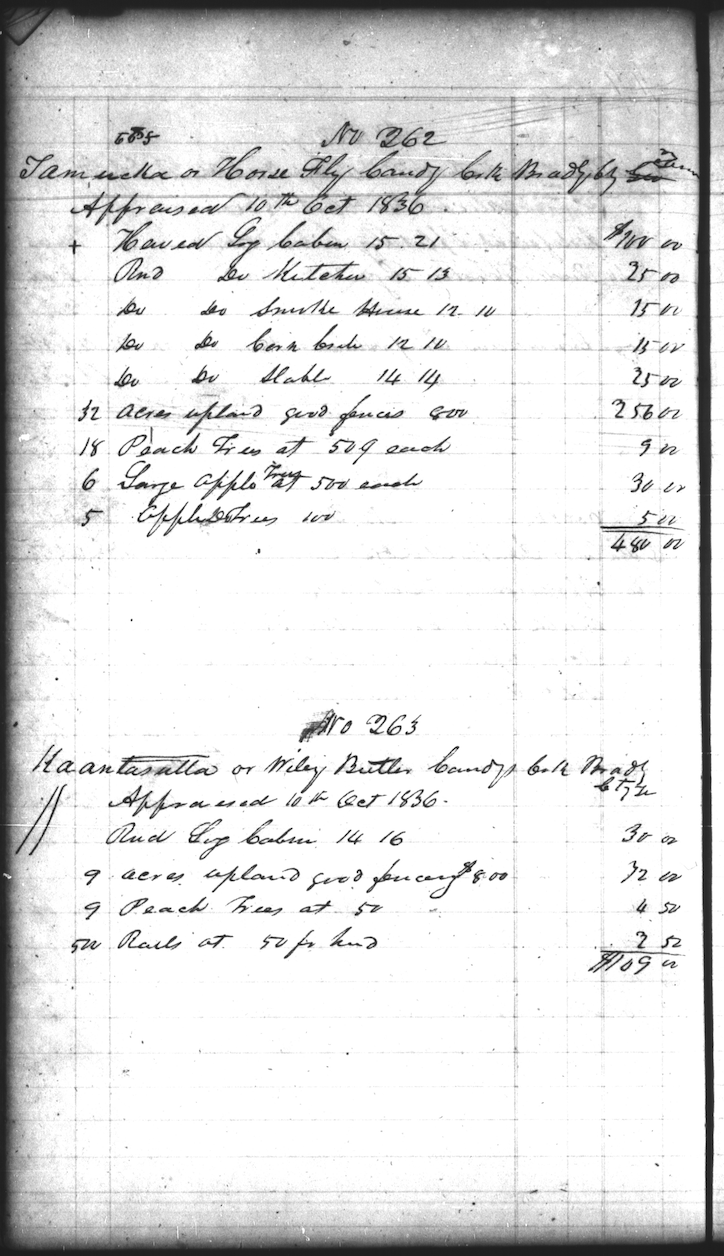 No 262
Tamucka or Horse Fly Candy Crk Bradly Cty Tenn
Appraised 10th Oct 1836.
+ Hewed Log Cabin 15. 21 $100 00
Rnd Do Kitchen 15 13 25 00
Do Do Smoke House 12. 10 15 00
Do Do Corn Crib 12 10 15 00
Do Do Stable 14 14 25 00
32 acres upland good fences 800 256 00
18 Peach Trees at 50 each 9 00
6 Large Apple Trees at 500 each 30 00
5 Apple Do Trees 100 5 00
480 00
No 263
Kaantasulla or Wiley Butler Candys Crk Bradly
Cty Te
Appraised 10th Oct 1836.
Rnd Log Cabin 14 16 30 00
9 acres upland good fencing $8.00 72 00
9 Peach Trees at 50 4 50
500 Rails at 50 pr hund 2 50
$109 00